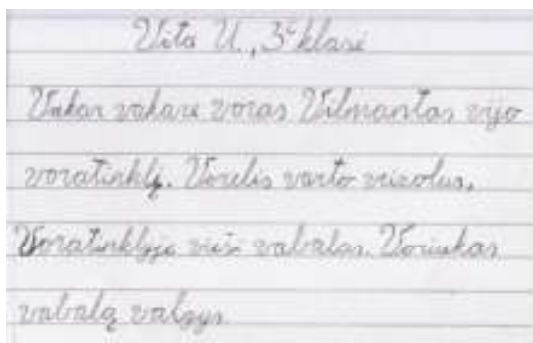 Vita U., 3c klasė
Vakar vakare voras Vilmantas vijo
voratinklį. Vorelis varto
Voratinklyje vabalas. Voriukas
vabalą valgys.